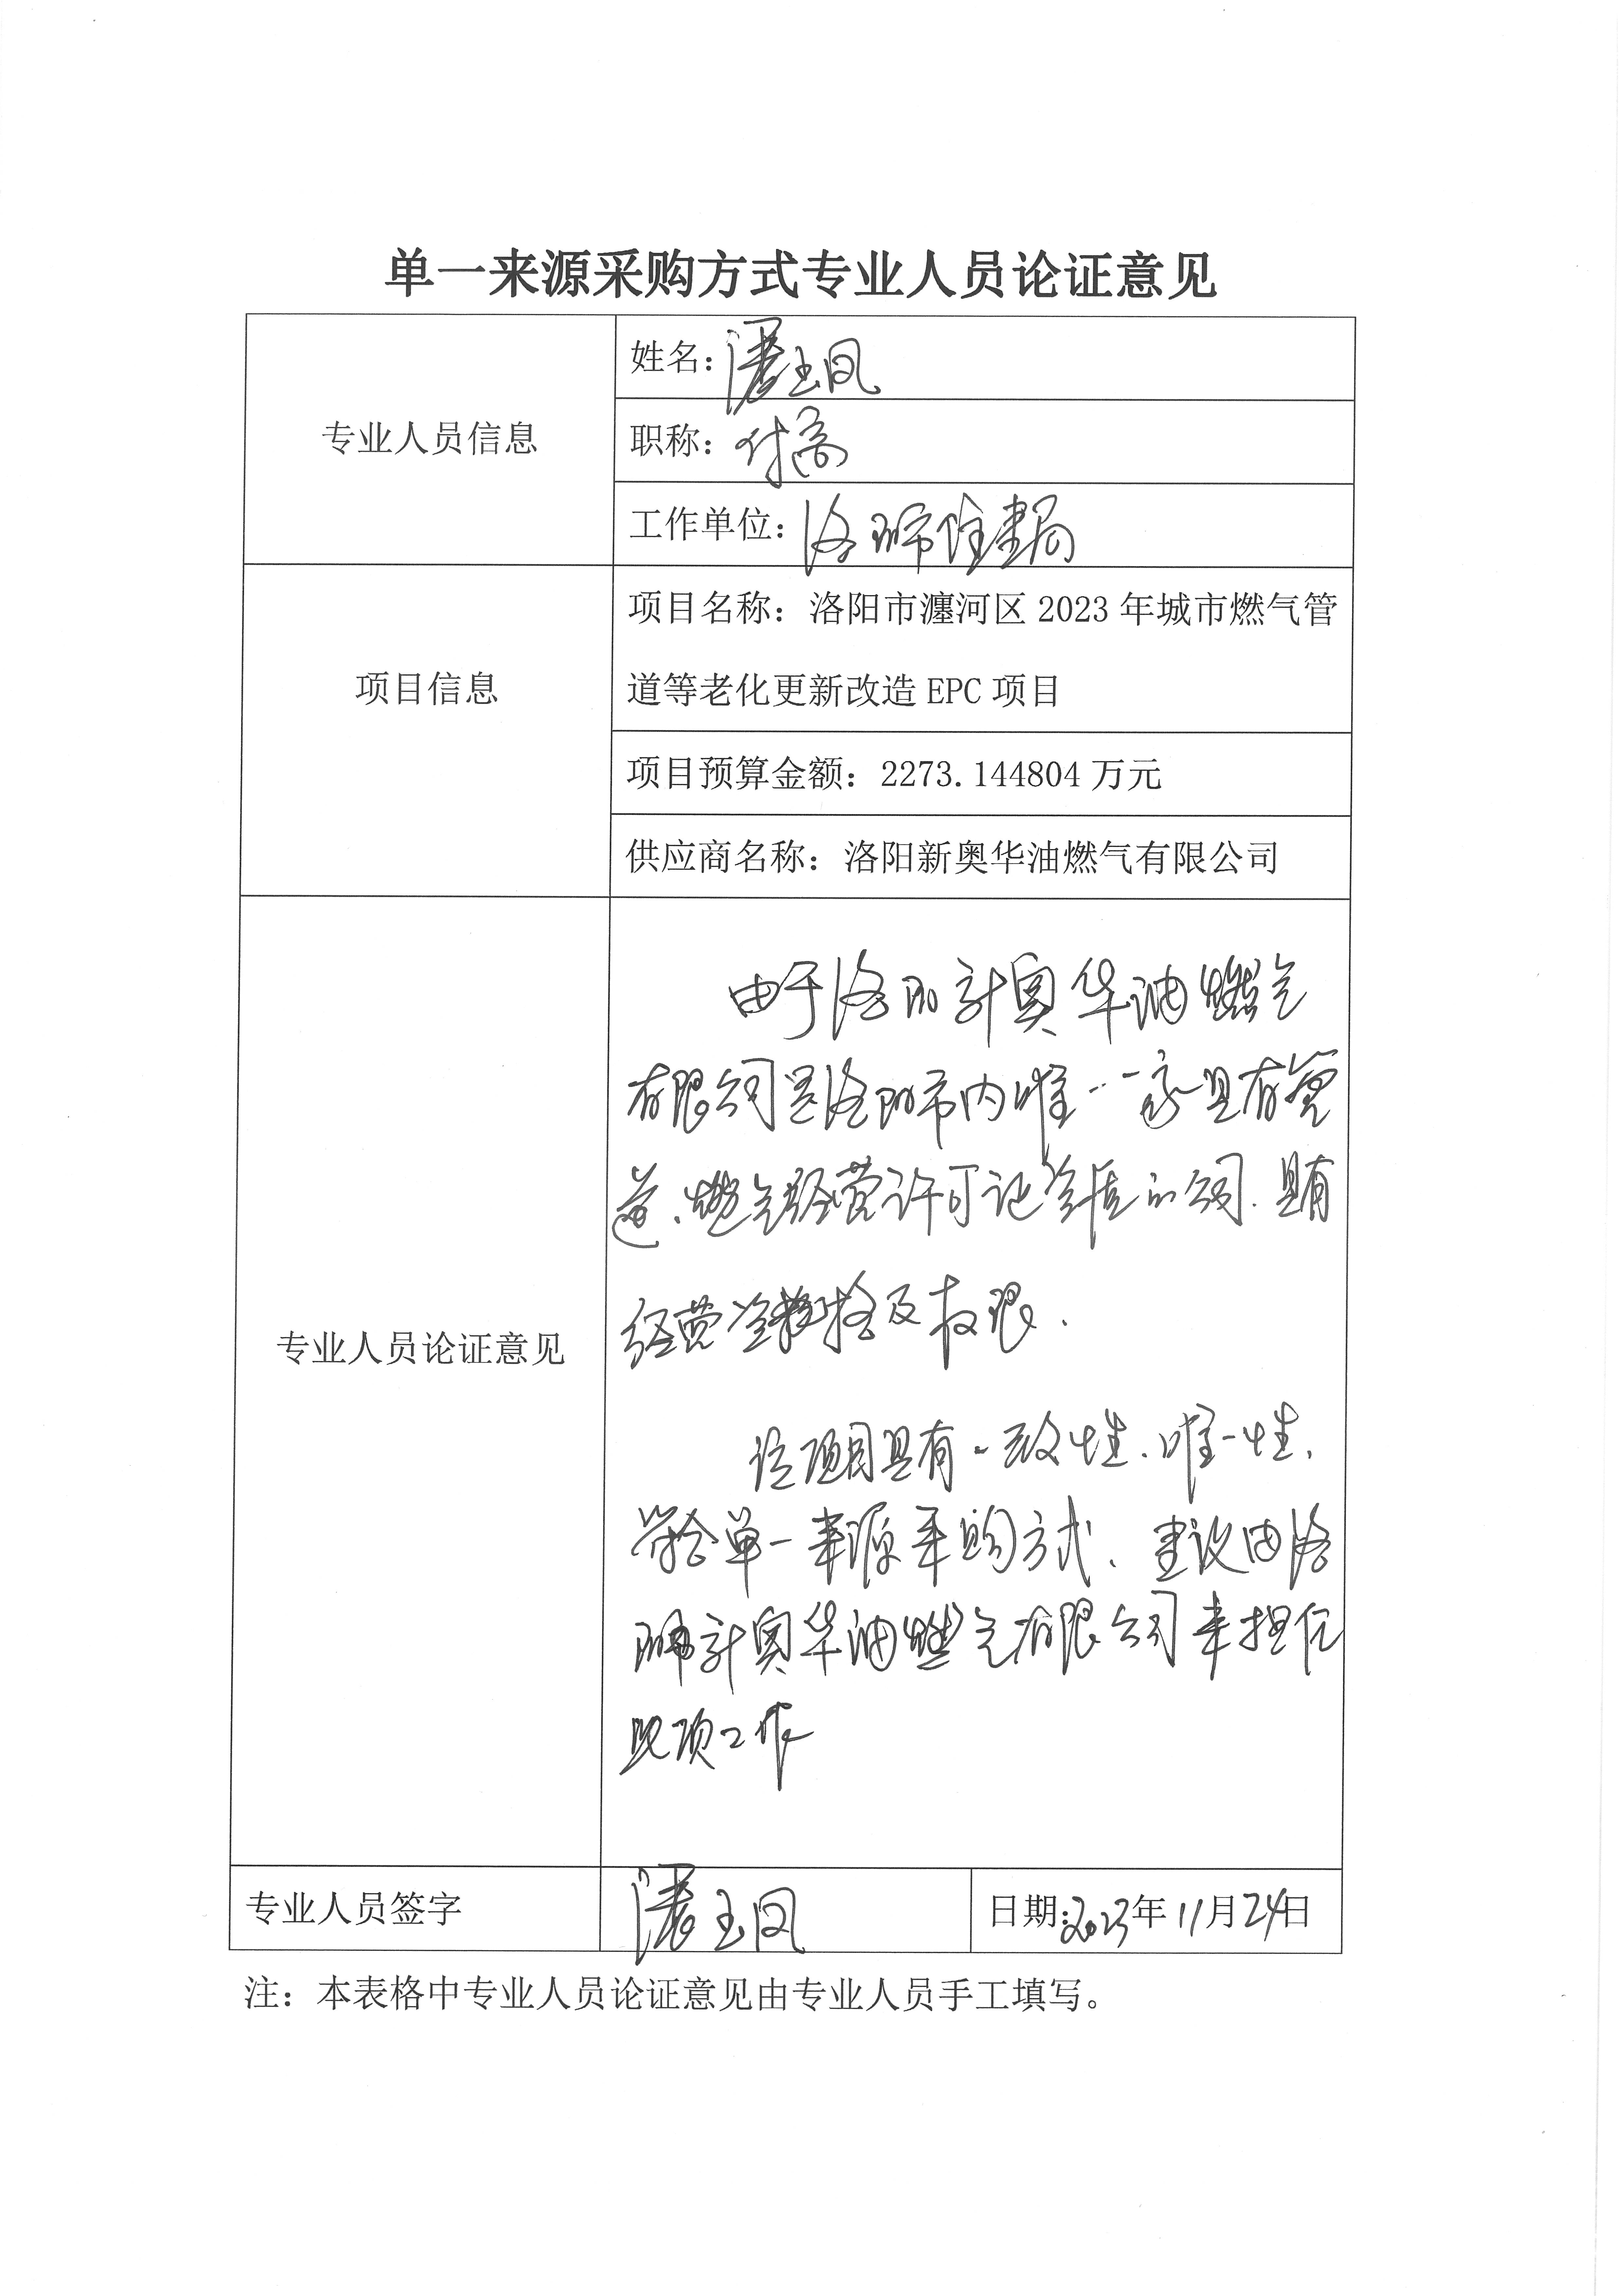 单一来源采购方式专业人员论证意见
专业人员信息
姓名：潘玉凤
职称：付高
工作单位：洛阳市住建局
项目信息
项目名称：洛阳市瀍河区 2023 年城市燃气管
道等老化更新改造 EPC 项目
项目预算金额：2273.144804 万元
供应商名称：洛阳新奥华油燃气有限公司
专业人员论证意见
由于洛阳新奥华油燃气
有限公司是洛阳市内唯一一家具有管
道、燃气经营许可证资质的公司. 具有
经营资格及权限.
该项目具有一致性、唯一性,
符合单一来源采购方式、建议由洛
阳新奥华油燃气有限公司来担任
此项工作
专业人员签字
潘玉凤
日期:2023年11月24日
注：本表格中专业人员论证意见由专业人员手工填写。